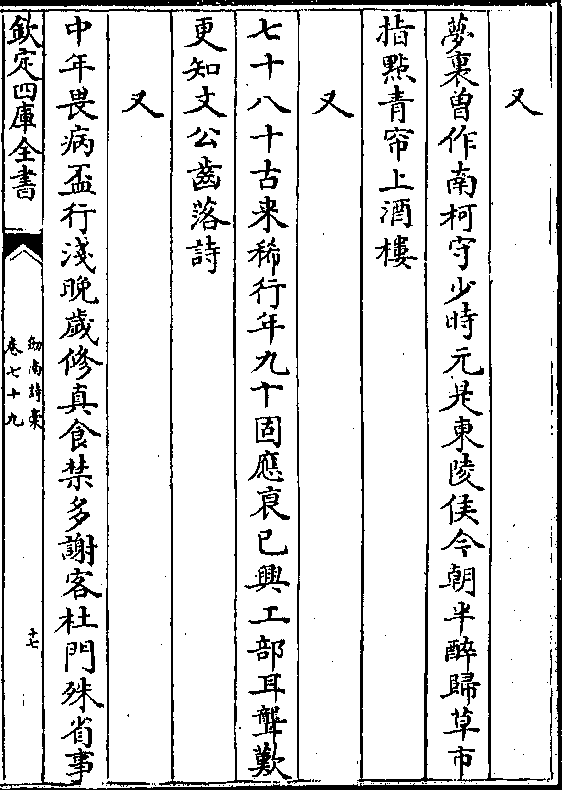 又
夢裏曽作南柯守少時元是東陵侯今朝半醉歸草市
指㸃青帘上酒樓
又
七十八十古来稀行年九十固應衰已興工部耳聾歎
更知文公齒落詩
又
中年畏病盃行淺晩歲修真食禁多謝客杜門殊省事
欽定四庫全書
劒南詩稾
卷七十九
十七